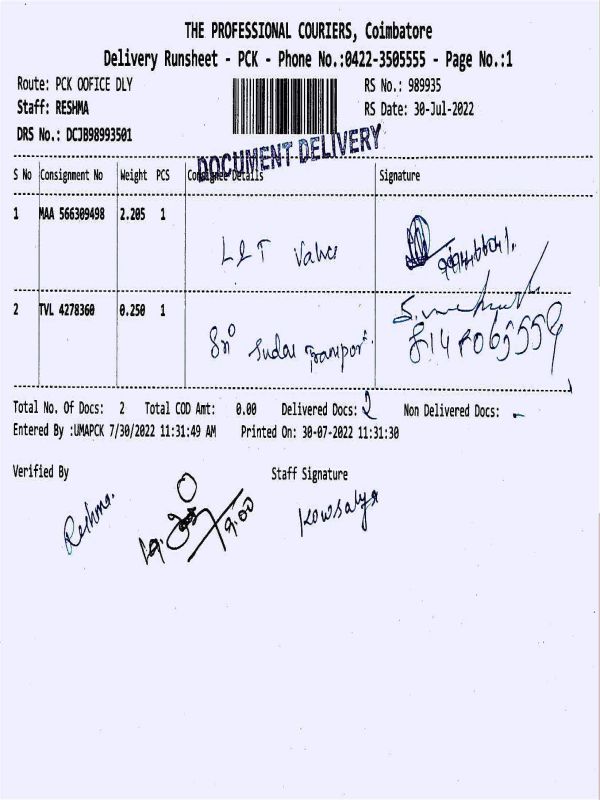 THE PROFESSIONAL COURIERS, Coimbatore
Delivery Runsheet - PCK - Phone No.:0422-3505555 - Page No.:1
Route: PCK OOFICE DLY RS No.: 989935
Staff: RESHMA RS Date: 30-Jul-2022
DRS No.: DCJB98993501
DOCUMENT DELIVERY
S No Consignment No Weight PCS Consignee Details Signature
1 MAA 566309498 2.205 1
L&T Valves
2 TVL 4278360 0.250 1
Sri Transport
Total No. Of Docs: 2 Total COD Amt: 0.00 Delivered Docs: 2 Non Delivered Docs: -
Entered By :UMAPCK 7/30/2022 11:31:49 AM Printed On: 30-07-2022 11:31:30
Verified By Staff Signature
Reshma. 9.00 Kowsalya